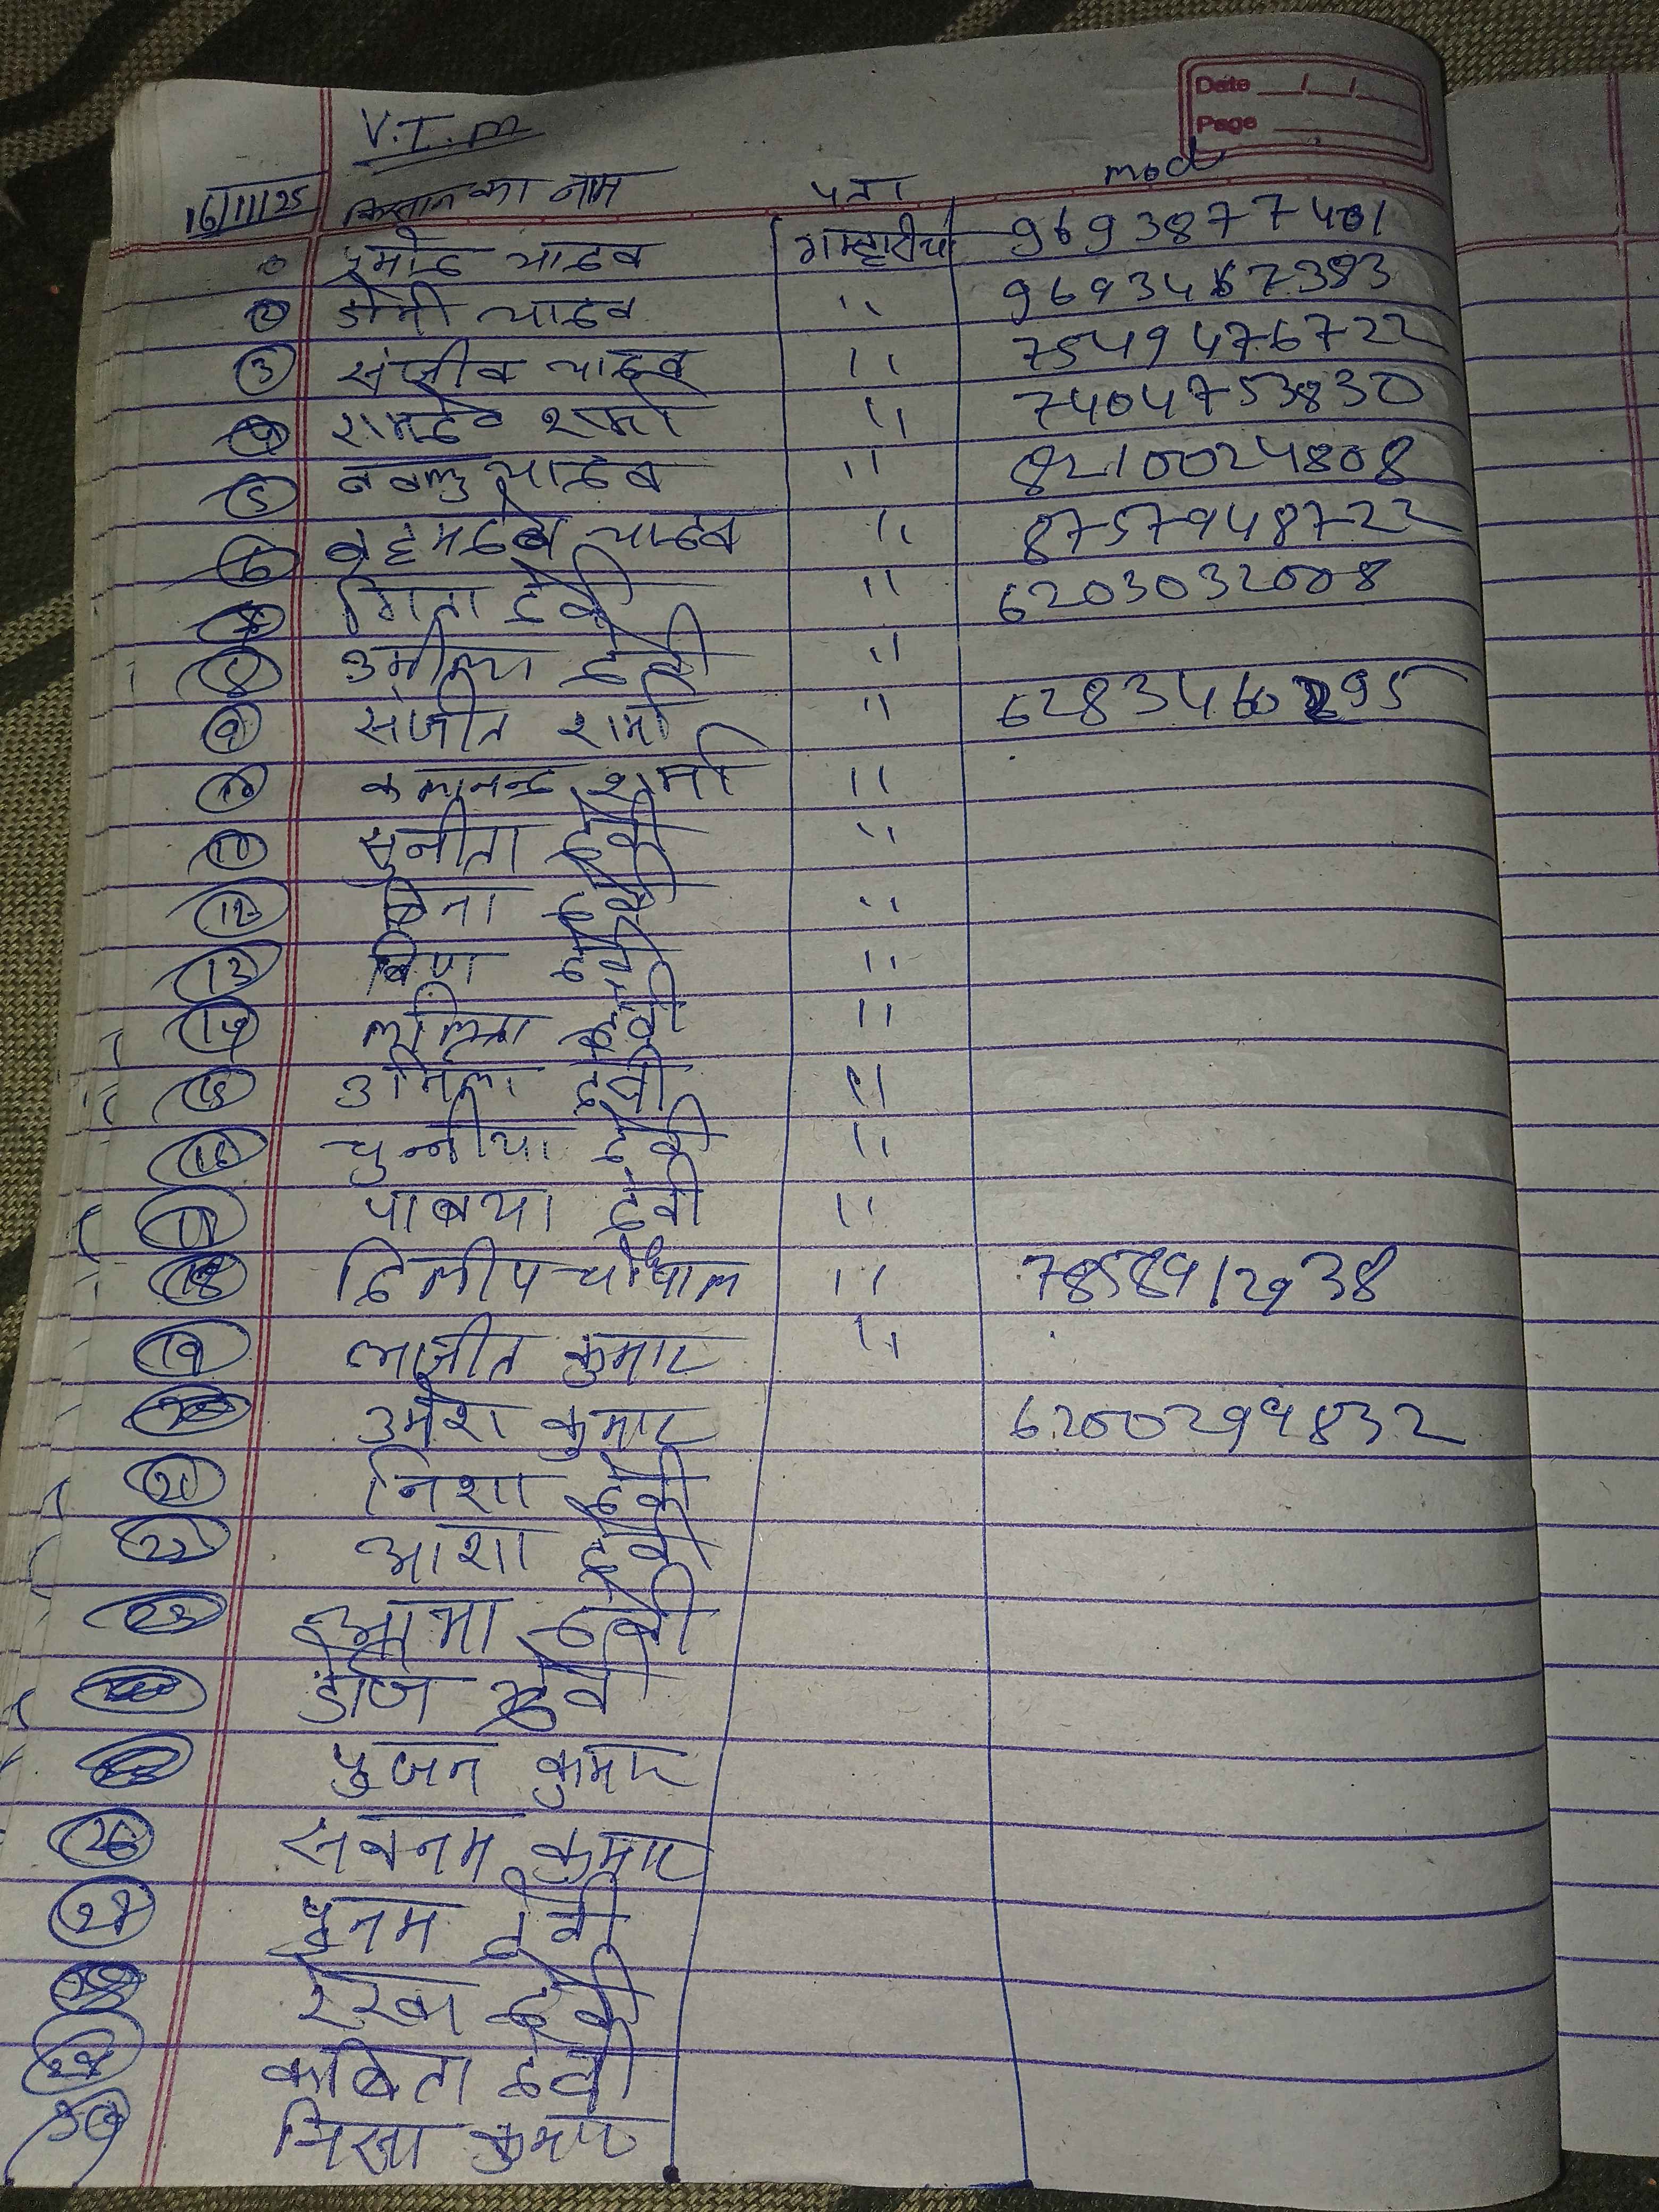 Date / /
Page
V.T.m
16/11/25 किसान का नाम पता mod
प्रमोद यादव गम्हारीया 9693877401
② डोमी यादव " 9693467383
③ संजीव यादव " 7549476722
④ रामदेव शर्मा " 7404753830
⑤ बबलु यादव " 8210024808
⑥ ब्रहमदेव यादव " 8757948722
⑦ गिता देवी " 6203032008
⑧ उर्मीला देवी "
⑨ संजीत शर्मा "
⑩ कलानन्द शर्मा "
⑪ सुनीता देवी "
⑫ बिना देवी "
⑬ देवी "
⑭ ललिता देवी "
⑮ उर्मिला देवी "
⑯ चुन्नीया देवी "
⑰ देवी "
⑱ दिलीप "
⑲ कुमार "
⑳ उमेश कुमार 6200294832
㉑ निशा देवी
㉒ आशा देवी
㉓ आभा देवी
देवी
पुजन कुमार
㉖ सबनम कुमार
㉗ पुनम देवी
㉘ रेखा देवी
㉙ कबिता देवी
㉚ कुमार